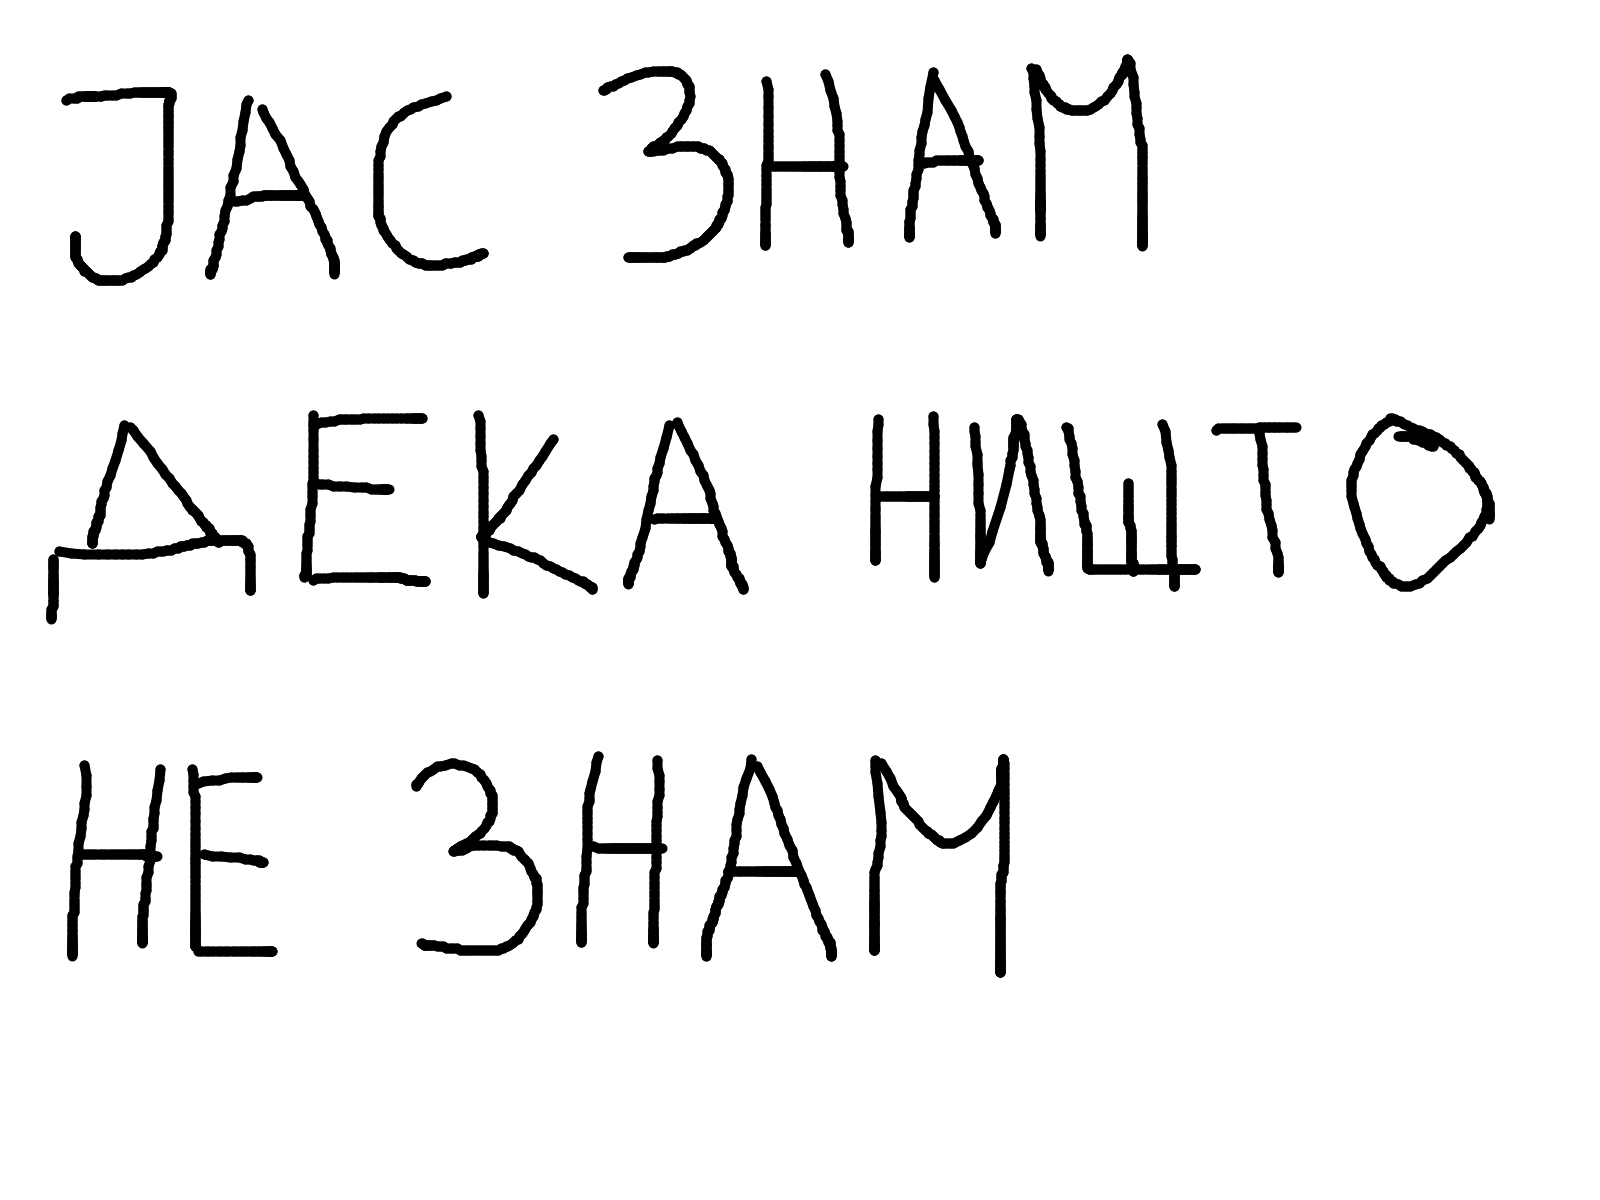 ЈАС ЗНАМ
ДЕКА НИШТО
НЕ ЗНАМ